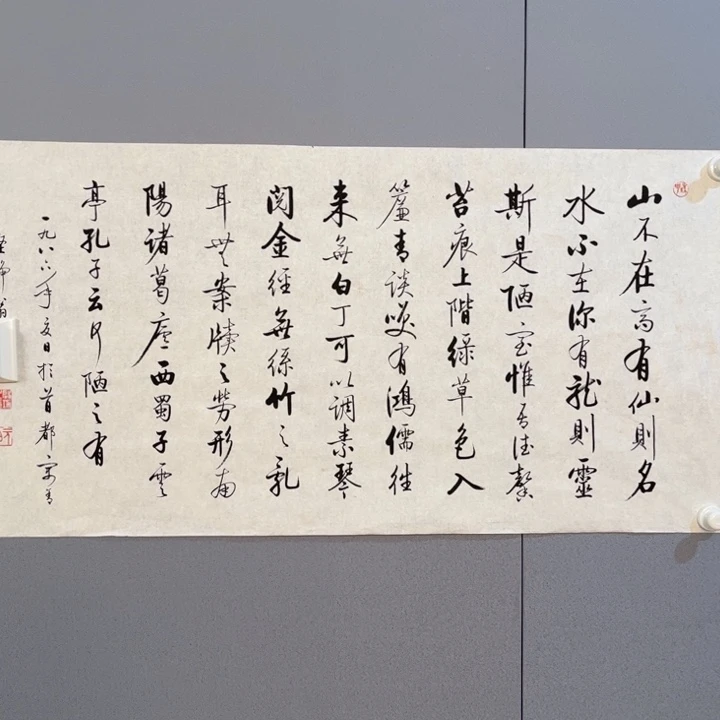 山不在高有仙則名
水不在深有龍則靈
斯是陋室惟吾德馨
苔痕上階綠草色入
簾青談笑有鴻儒往
来無白丁可以调素琴
閱金經無絲竹之乱
耳無案牘之勞形南
陽諸葛廬西蜀子雲
亭孔子云何陋之有
一九八六年夏日於首都